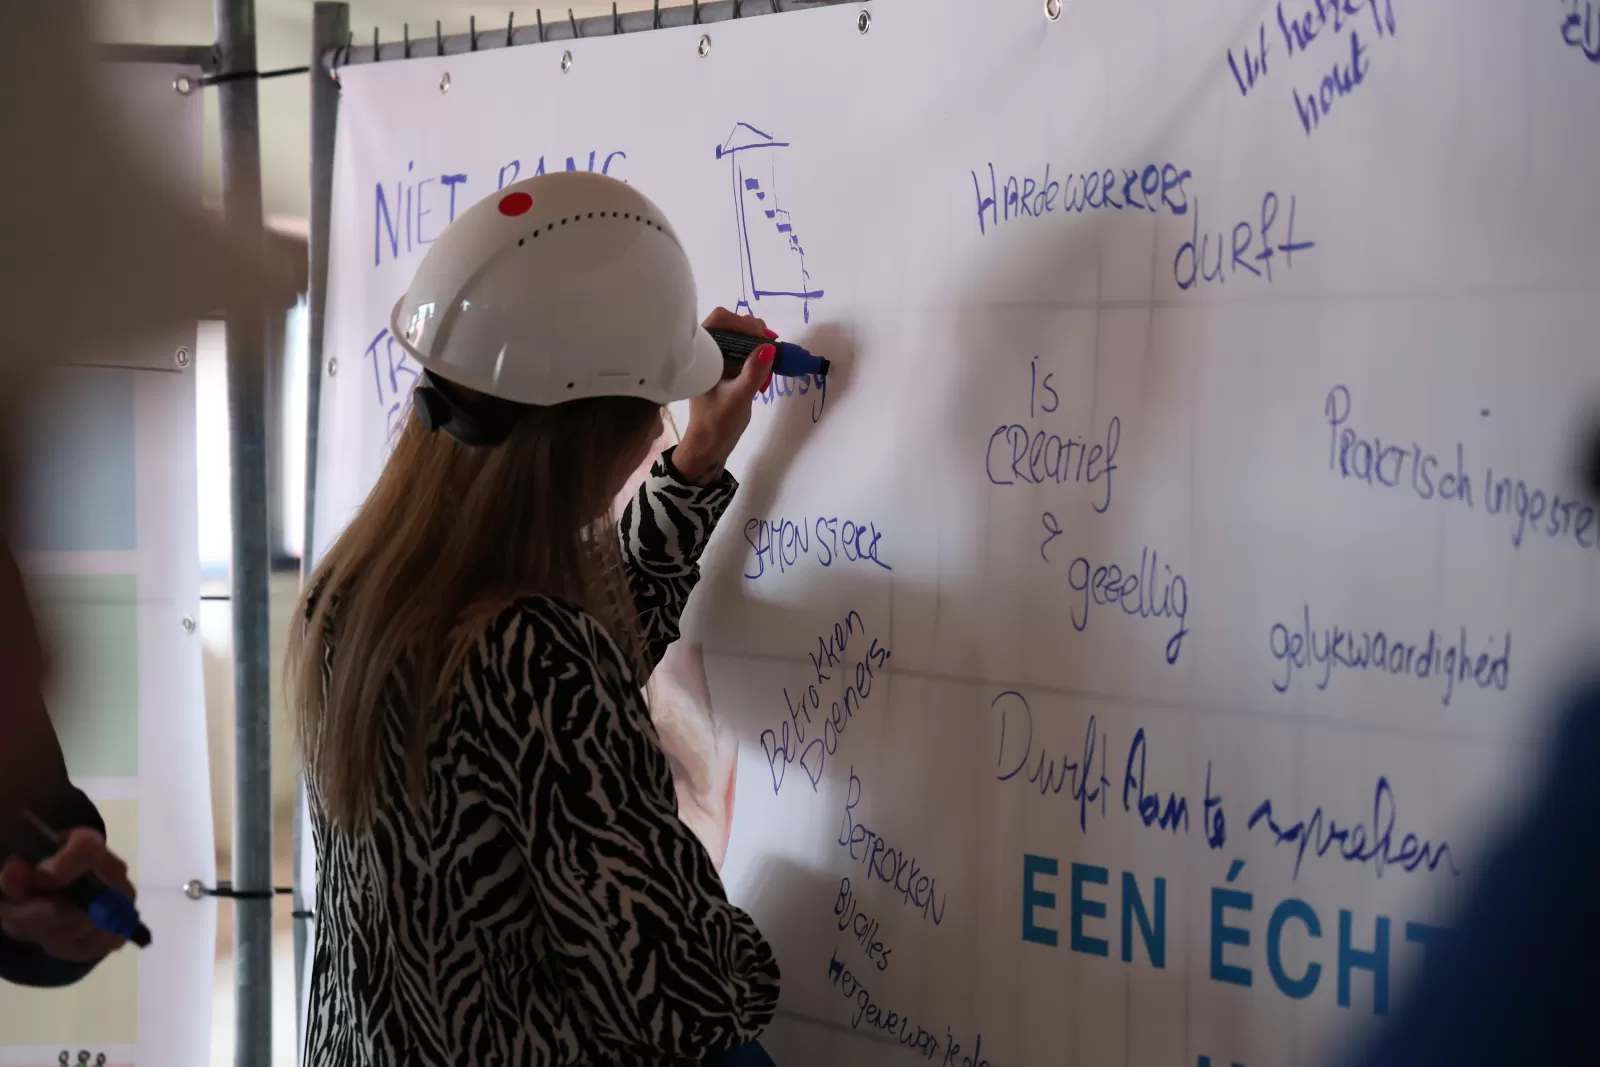 NIET BANG
Uit hetzelf
hout
HARDEWERKERS
durft
is
CREATIEF
&
gezellig
Praktisch ingeste
SAMEN STERK
gelykwaardigheid
Betrokken
Doeners.
Durft Aan te
BETROKKEN
Bij alles
Hetgene wat je
EEN ÉCHT